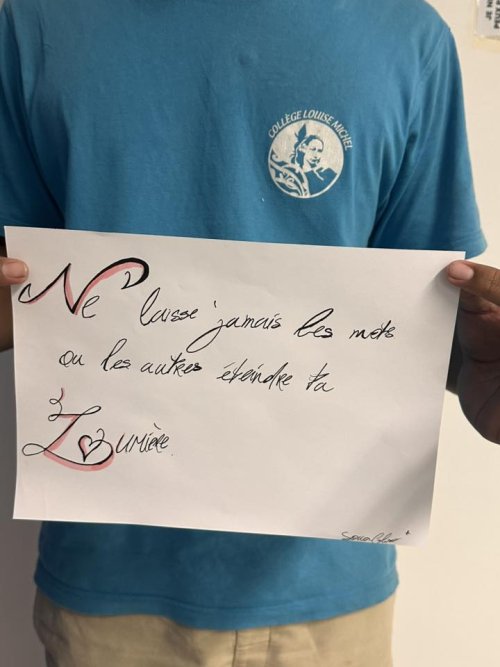 JE NE
COLLÈGE LOUISE MICHEL
Ne laisse jamais les mots
ou les autres éteindre ta
Lumière.